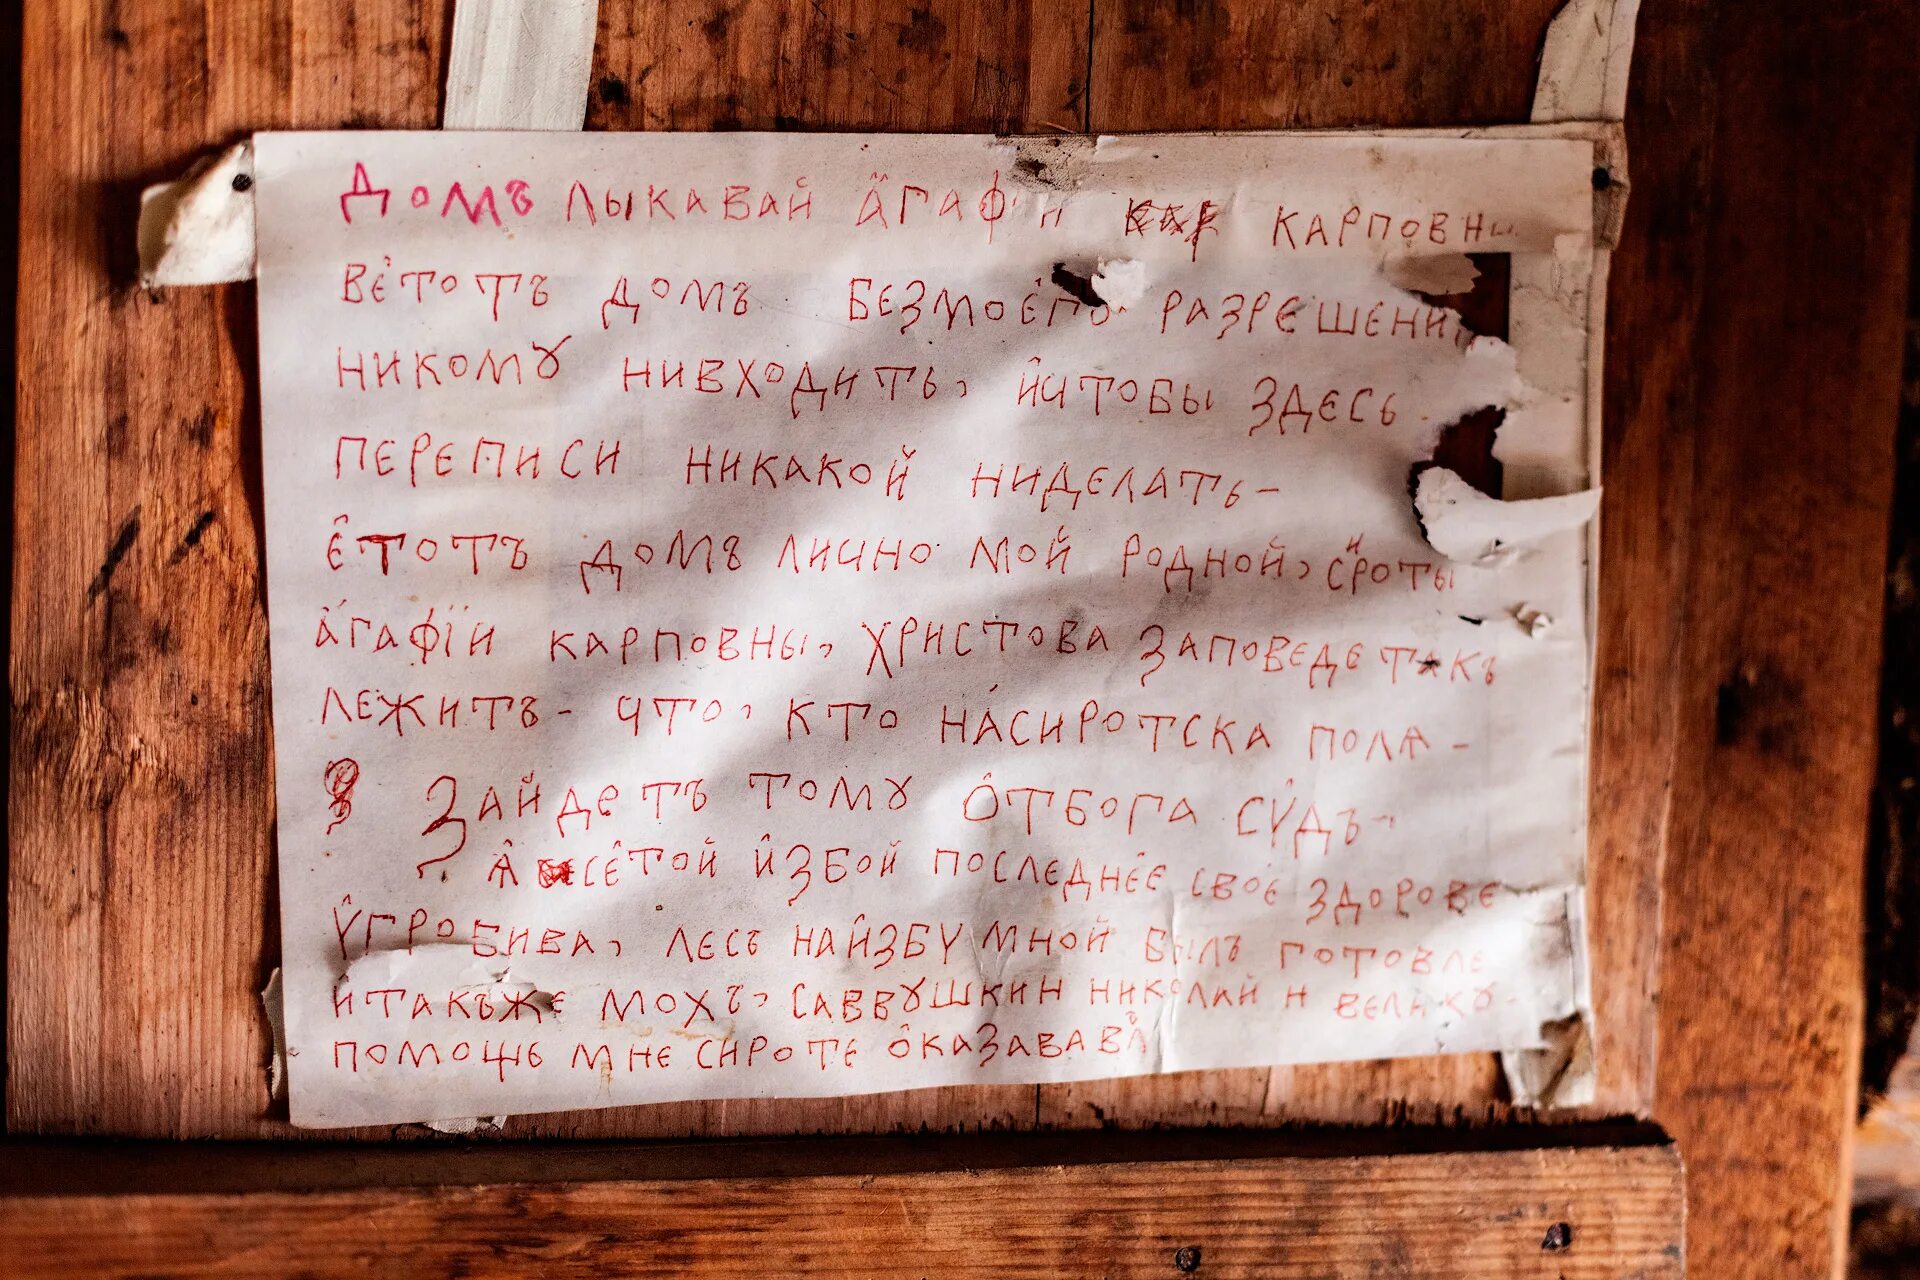 Домъ лыкавай а҆гафии карповны
ве҆тотъ домъ безмое҆го разрешени
никомꙋ нивходить, и҆чтобы здесь
переписи никакой ниделать-
е҆тотъ домъ лично мой родной, сироты
а҆гафїи карповны, христова заповеде такъ
лежитъ- что, кто на́сиротска поля-
зайдетъ томꙋ о҆тбога сѵдъ-
ѧ҆ се҆той и҆збой последнее҆ свое҆ здорове
ѵ҆гробива, лесъ наи҆збѵ мной былъ готовле
и҆такъже мохъ, саввꙋшкин николай н великꙋ-
помощь мне сироте о҆казавал